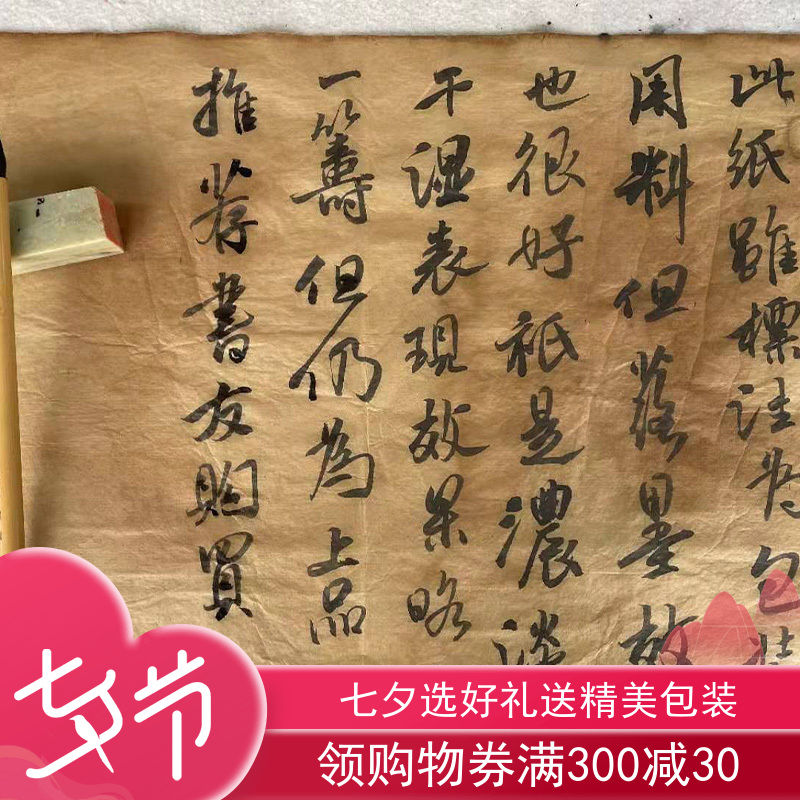 此紙雖標注為包裝
用料但蘸墨效
也很好祇是濃淡
干湿表現效果略
一籌但仍為上品
推荐書友購買
七夕节
七夕选好礼送精美包装
领购物券满300减30